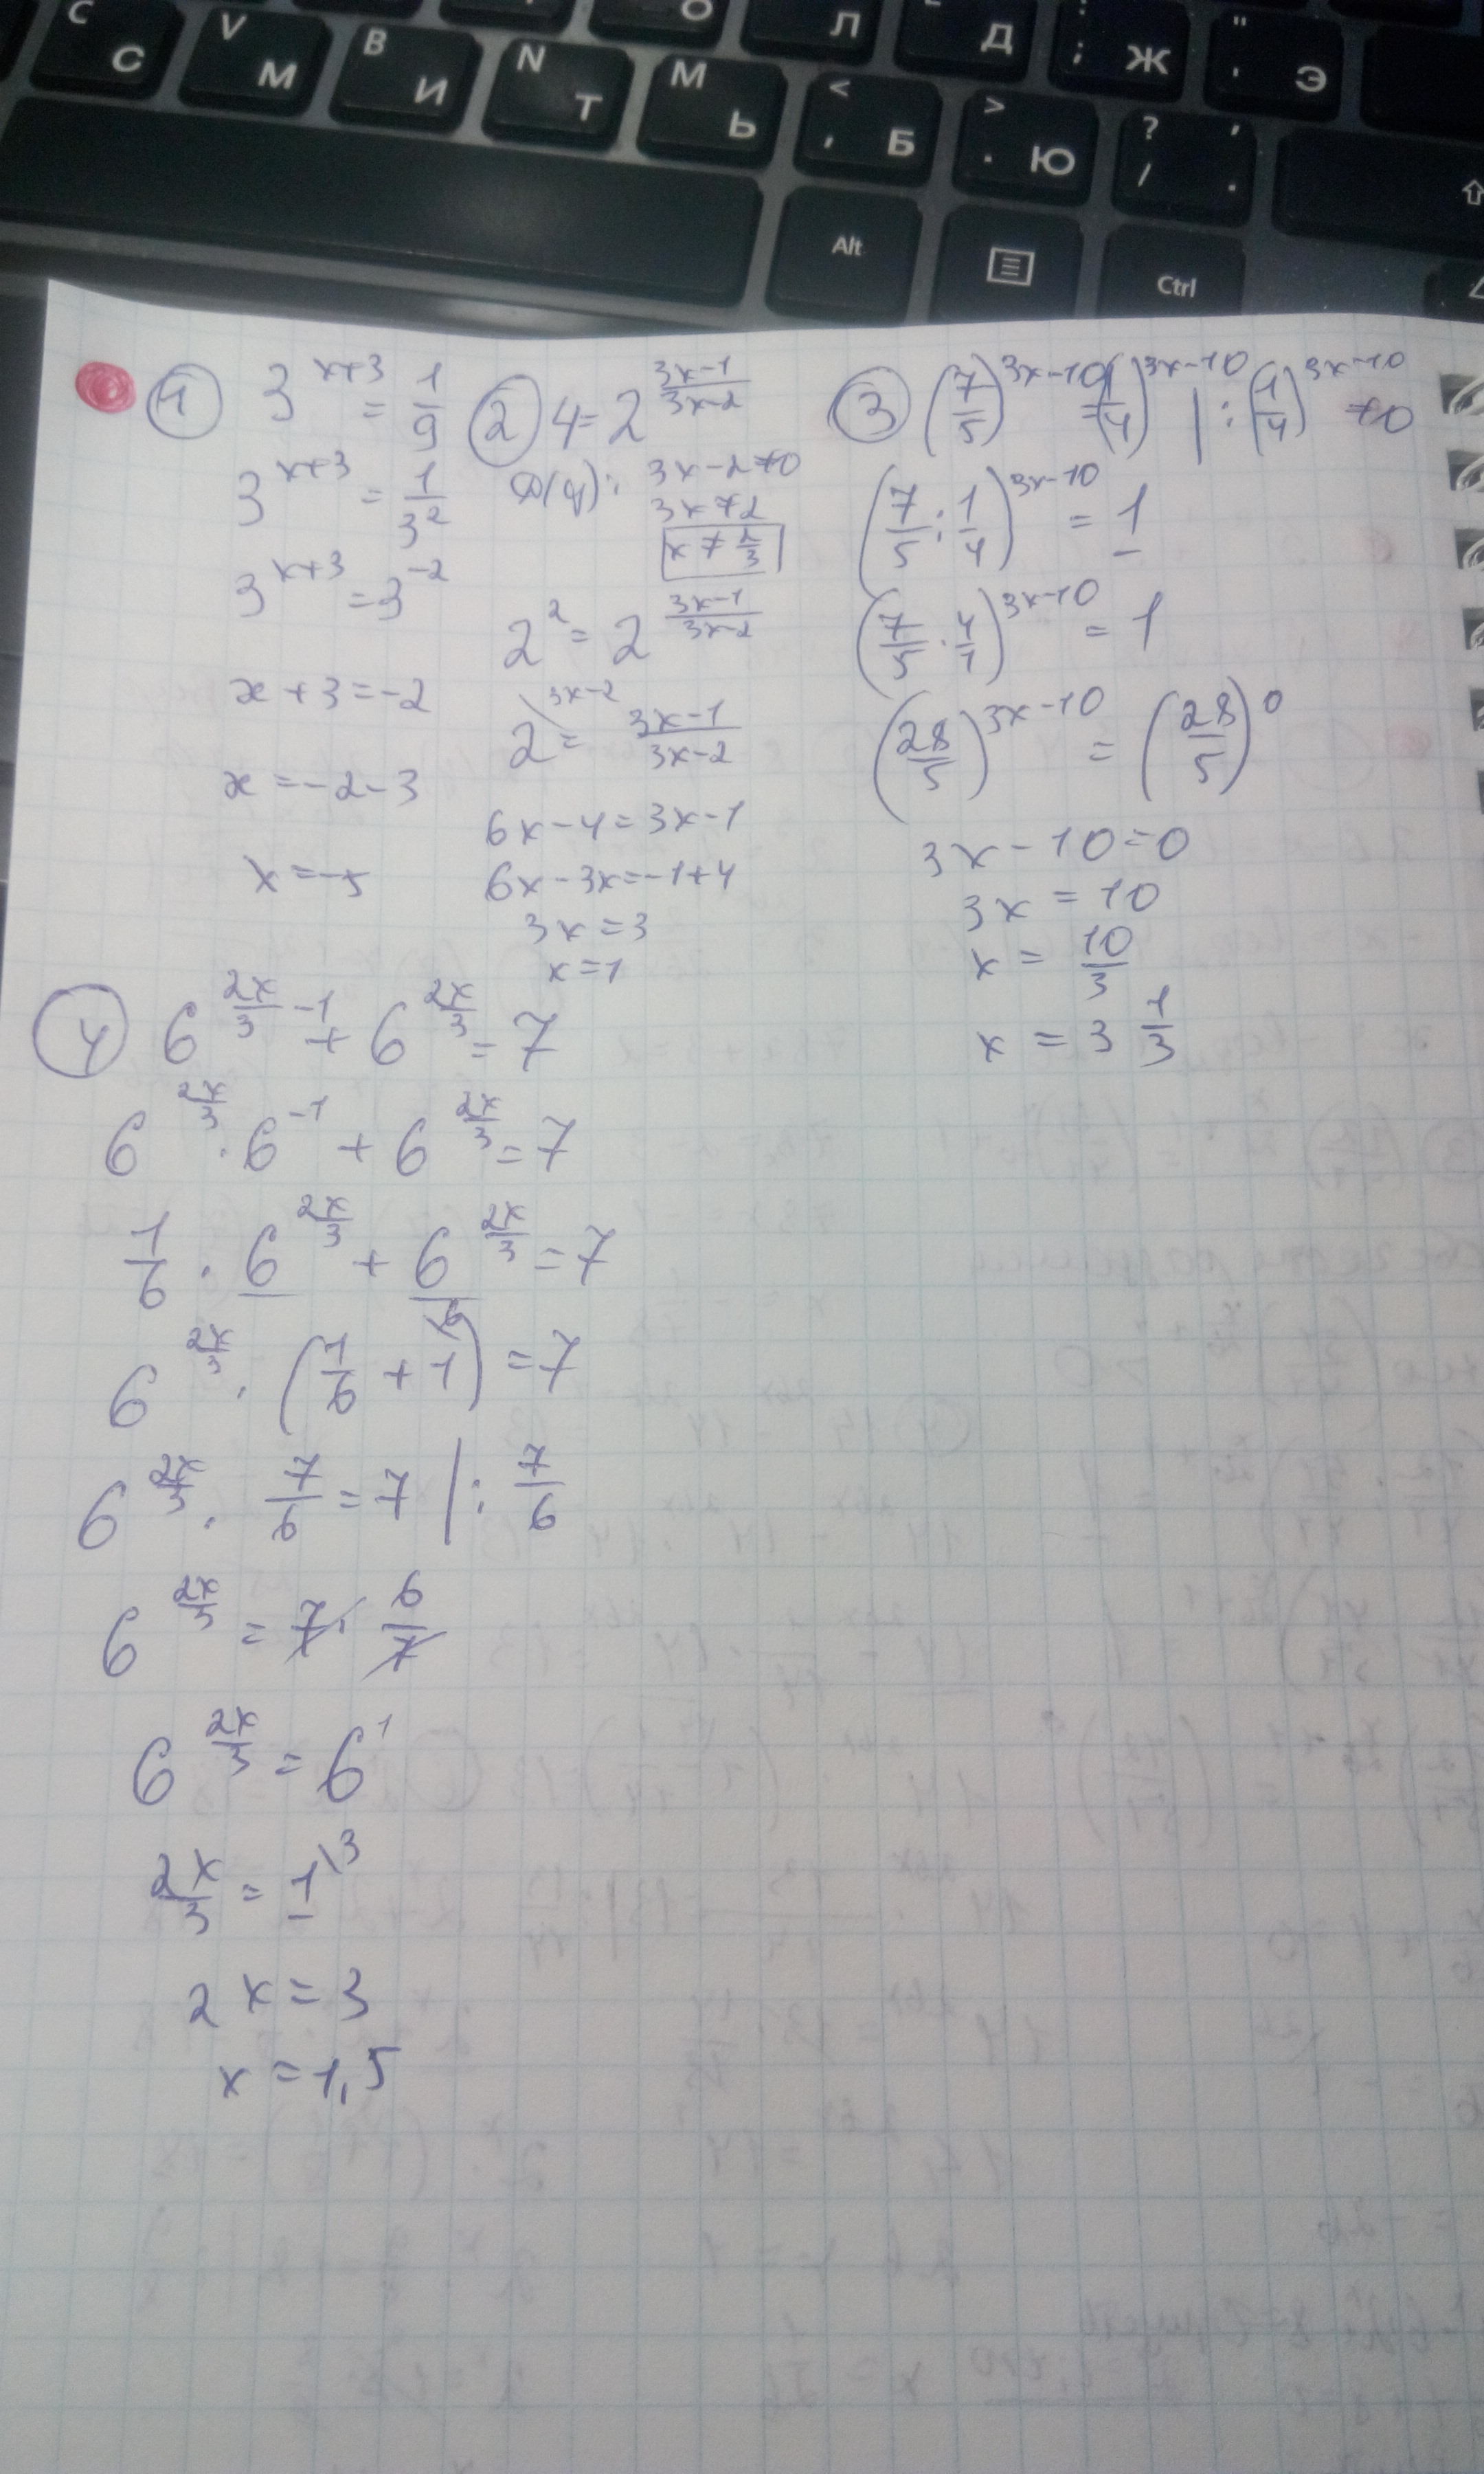 C С V М B И N Т M Ь < , Б > . Ю ? / , .
О Л Д : ; Ж " ' Э
Alt Ctrl
① 3^(x+3) = 1/9
3^(x+3) = 1/3^2
3^(x+3) = 3^(-2)
x + 3 = -2
x = -2 - 3
x = -5
② 4 = 2^((3x-1)/(3x-2))
D(y): 3x-2≠0
3x≠2
x ≠ 2/3
2^2 = 2^((3x-1)/(3x-2))
2\3x-2 = (3x-1)/(3x-2)
6x-4=3x-1
6x-3x=-1+4
3x=3
x=1
③ (7/5)^(3x-10) = (1/4)^(3x-10) | : (1/4)^(3x-10) ≠0
(7/5 : 1/4)^(3x-10) = 1
(7/5 · 4/1)^(3x-10) = 1
(28/5)^(3x-10) = (28/5)^0
3x - 10 = 0
3x = 10
x = 10/3
x = 3 1/3
④ 6^(2x/3 - 1) + 6^(2x/3) = 7
6^(2x/3) · 6^(-1) + 6^(2x/3) = 7
1/6 · 6^(2x/3) + 6^(2x/3) = 7
6^(2x/3) · (1/6 + 1\6) = 7
6^(2x/3) · 7/6 = 7 | : 7/6
6^(2x/3) = 7 · 6/7
6^(2x/3) = 6^1
2x/3 = 1\3
2x = 3
x = 1,5